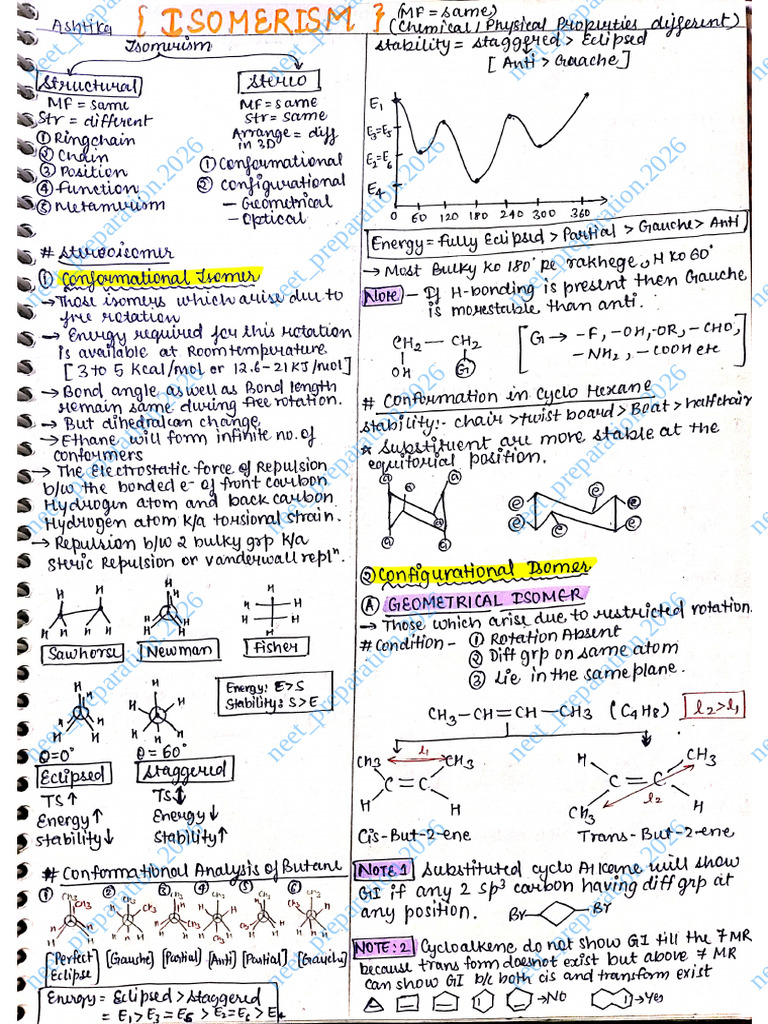 Ashtika { ISOMERISM } (MF = same)
(Chemical / Physical Properties different)
Isomerism
Structural
MF = same
Str = different
① Ringchain
② Chain
③ Position
④ Function
⑤ Metamerism
Stereo
MF = same
Str = same
Arrange = diff
in 3D
① Conformational
② Configurational
– Geometrical
– Optical
# Stereoisomer
① Conformational Isomer
→ Those isomers which arise due to
free rotation
→ Energy required for this rotation
is available at Room temprature
[3 to 5 Kcal/mol or 12.6-21 KJ/mol]
→ Bond angle as well as Bond length
remain same during free rotation.
→ But dihedral can change
→ Ethane will form infinite no. of
conformers
→ The Electrostatic force of Repulsion
b/w the bonded e- of front carbon
Hydrogen atom and back carbon
Hydrogen atom k/a torsional strain.
→ Repulsion b/w 2 bulky grp k/a
steric Repulsion or vanderwall repln.
H H
H H H H
Sawhorse
H
H H
H H
Newman
H
H H
H
Fisher
H H
H H
H H
θ=0°
Eclipsed
TS↑
Energy↑
Stability↓
H
H H
H H
H
θ = 60°
Staggered
TS↓
Energy↓
Stability↑
Energy: E>S
Stability: S>E
# Conformational Analysis of Butane
① ② ③ ④ ⑤ ⑥
CH3 CH3 CH3 CH3 CH3
[Perfect Eclipse] [Gauche] [Partial] [Anti] [Partial] [Gauche]
Energy = Eclipsed > Staggered
= E1 > E3 = E5 > E2 = E6 > E4
Stability = Staggered > Eclipsed
[Anti > Gauche]
E1
E3=E5
E2=E6
E4
0 60 120 180 240 300 360
Energy = Fully Eclipsed > Partial > Gauche > Anti
→ Most Bulky ko 180° pe rakhege, H ko 60°
Note – If H-bonding is present then Gauche
is more stable than anti.
CH2 — CH2
OH G
[G → -F, -OH, -OR, -CHO,
-NH2, -COOH etc]
# Conformation in Cyclo Hexane
stability:- chair > twist board > Boat > half chair
* Substituent are more stable at the
equitorial position.
a a a a a
e e e e e e
② Configurational Isomer
Ⓐ GEOMETRICAL ISOMER
→ Those which arise due to restricted rotation.
# Condition – ① Rotation Absent
② Diff grp on same atom
③ Lie in the same plane.
CH3–CH=CH–CH3 (C4H8) l2>l1
CH3 l1 CH3
C=C
H H
Cis-But-2-ene
H CH3
C=C
l2
CH3 H
Trans-But-2-ene
NOTE 1 Substituted cyclo Alkane will show
GI if any 2 sp3 carbon having diff grp at
any position. Br Br
NOTE: 2 Cycloalkene do not show GI till the 7 MR
because trans form does not exist but above 7 MR
can show GI b/c both cis and transform exist
→ No → Yes
neet_preparation.2026